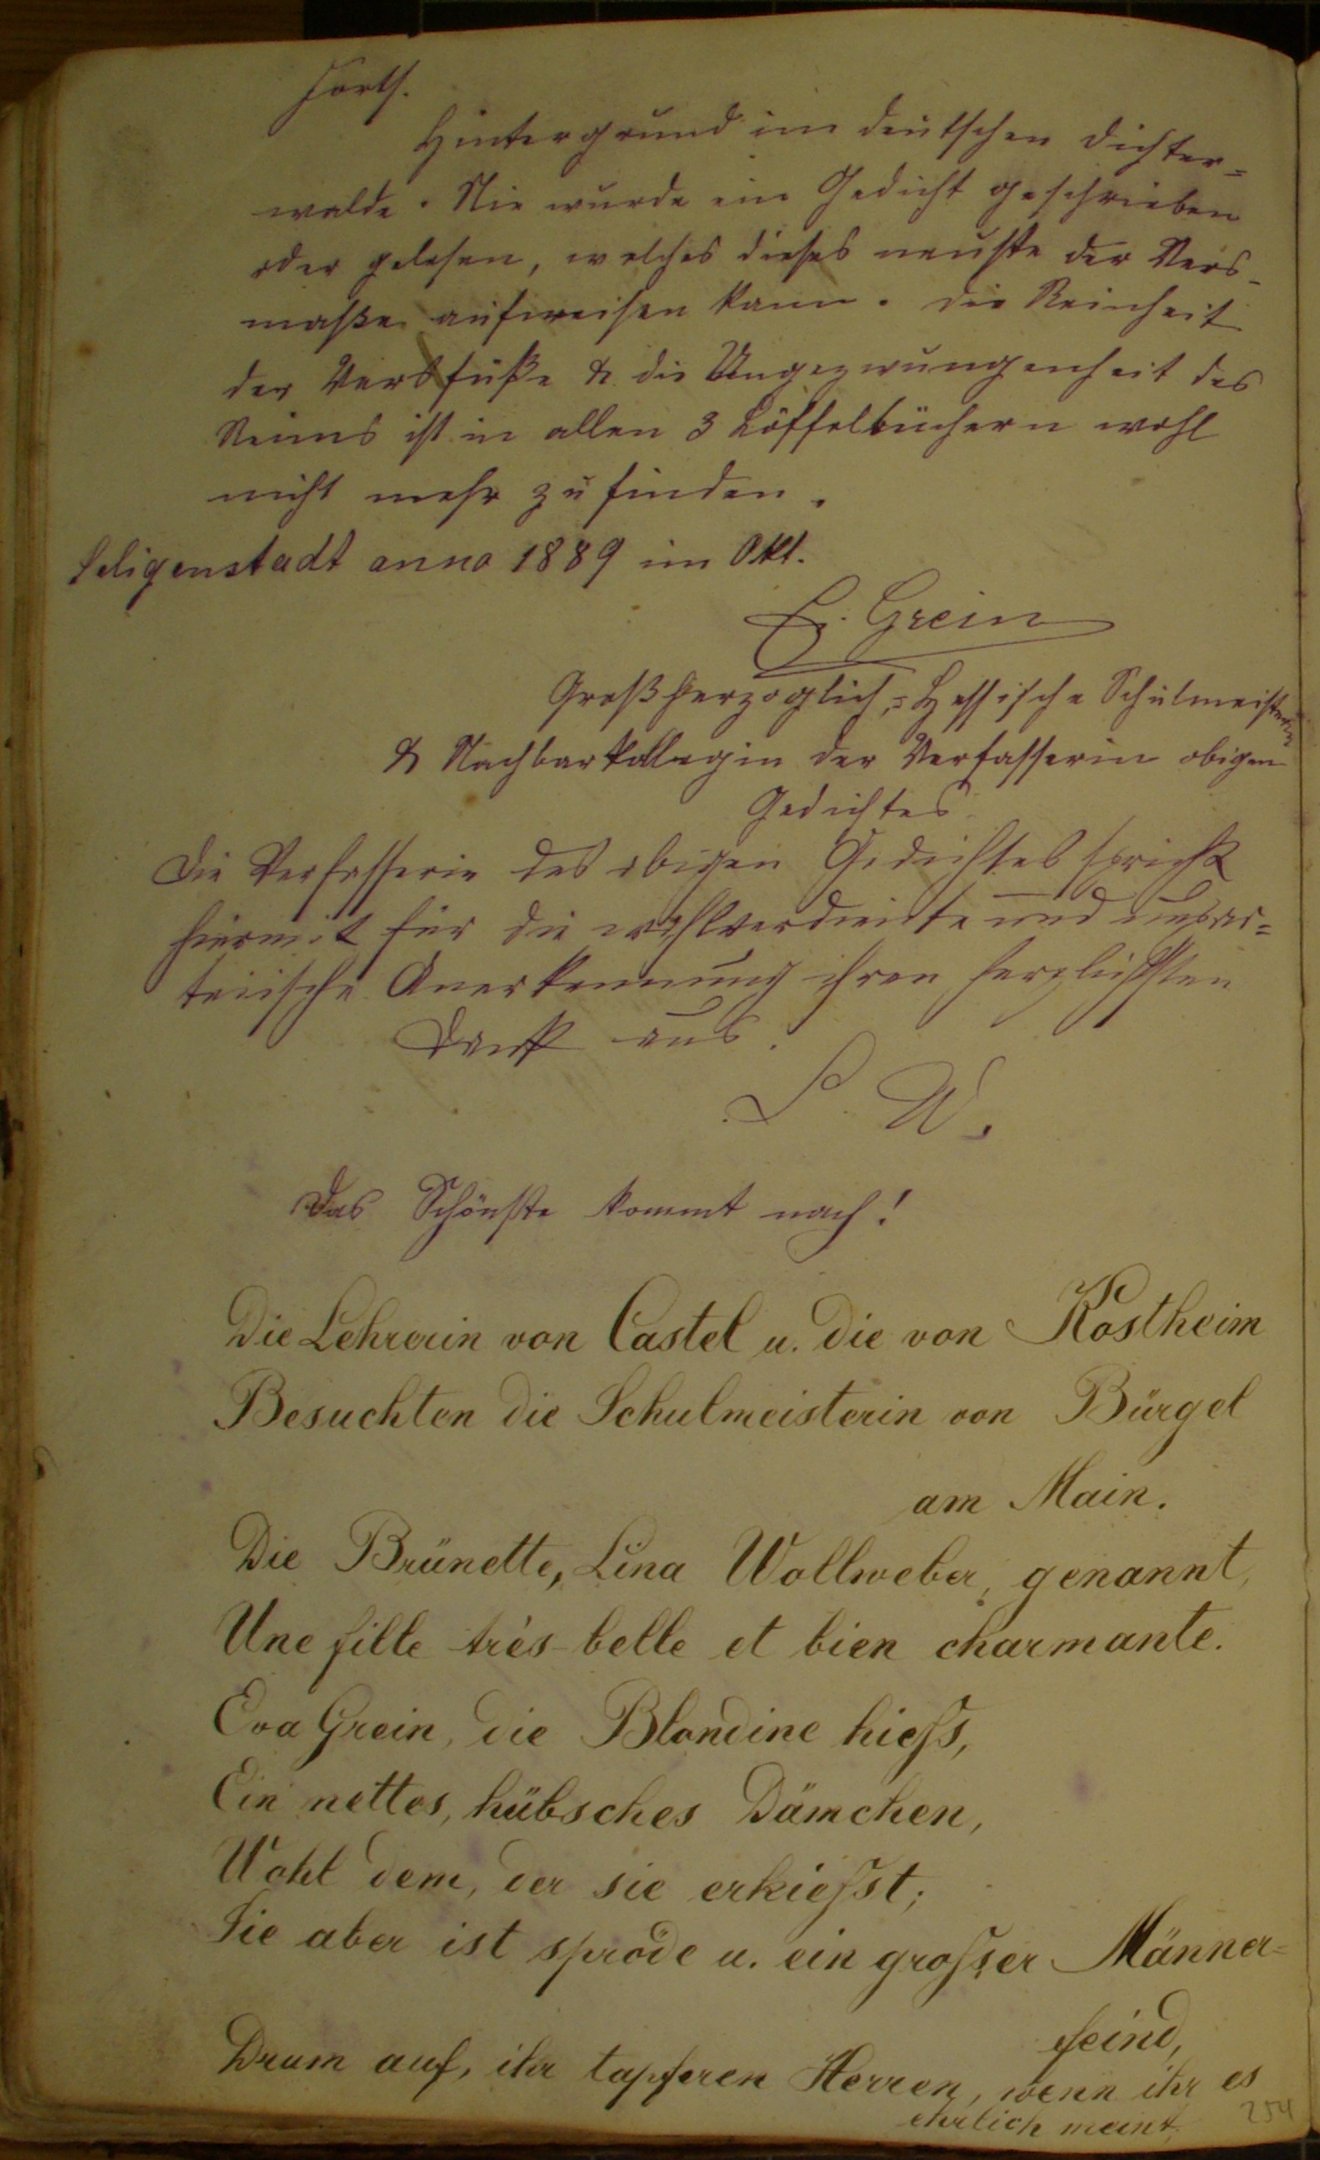 Forts.
Hintergrund im deutschen Dichter=
walde. Nie wurde ein Gedicht geschrieben
oder gelesen, welches dieses neuste der Vers-
maße aufweisen kann. Die Reinheit
der Versfüße & die Ungezwungenheit des
Reims ist in allen 3 Löffelbüchern wohl
nicht mehr zu finden.
Seligenstadt anno 1889 im Okt.
E. Grein
Großherzoglich=Hessische Schulmeisterin
& Nachbarkollegin der Verfasserin obigen
Gedichtes
Die Verfasserin des obigen Gedichtes spricht
hiermit für die wohlverdiente und unpar=
teiische Anerkennung ihren herzlichsten
Dank aus.
L. W.
Das Schönste kommt nach!
Die Lehrerin von Castel u. die von Kostheim
Besuchten die Schulmeisterin von Bürgel
am Main.
Die Brünette, Lina Wollweber, genannt,
Une fille très-belle et bien charmante.
Eva Grein, die Blondine hieß,
Ein nettes, hübsches Dämchen,
Wohl dem, der sie erkießt;
Sie aber ist spröde u. ein großer Männer=
feind,
Drum auf, ihr tapferen Herren, wenn ihr es
ehrlich meint.
254